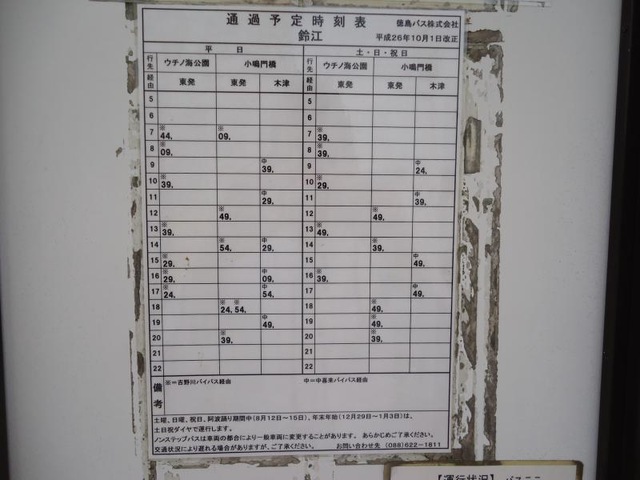 通過予定時刻表 徳島バス株式会社
鈴江 平成26年10月1日改正
平日 土・日・祝日
行先 ウチノ海公園 小鳴門橋 行先 ウチノ海公園 小鳴門橋
経由 東発 東発 木津 経由 東発 東発 木津
5 5
6 6
7 ※44. ※09. 7 ※39.
8 ※09. 8 ※39.
9 中39. 9 中24.
10 ※39. 10 ※29.
11 中29. 11 中39.
12 ※49. 12 ※49.
13 ※39. 13 ※49.
14 ※54. 中29. 14 ※39.
15 ※29. 15 中49.
16 ※29. 中09. 16 ※39.
17 ※24. 中54. 17 中49.
18 ※24. ※54. 18 ※49.
19 中49. 19 ※49.
20 ※39. 20 ※39.
21 21
22 22
備考
※=吉野川バイパス経由 中=中喜来バイパス経由
土曜、日曜、祝日、阿波踊り期間中(8月12日~15日)、年末年始(12月29日~1月3日)は、
土日祝ダイヤで運行します。
ノンステップバスは車両の都合により一般車両に変更することがあります。 あらかじめご了承ください。
交通状況により遅れる場合がありますが、ご了承ください。 お問い合わせ先 (088)622-1811
【運行状況】